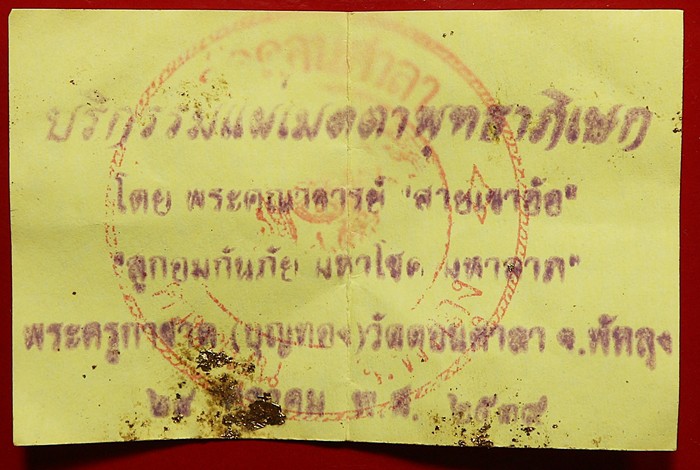 วัดดอนศาลา
บริกรรมแผ่เมตตาพุทธาภิเษก
โดย พระคณาจารย์ "สายเขาอ้อ"
"ลูกอมกันภัย มหาโชค มหาลาภ"
พระครูกาชาด (บุญทอง) วัดดอนศาลา จ.พัทลุง
พ.ศ.